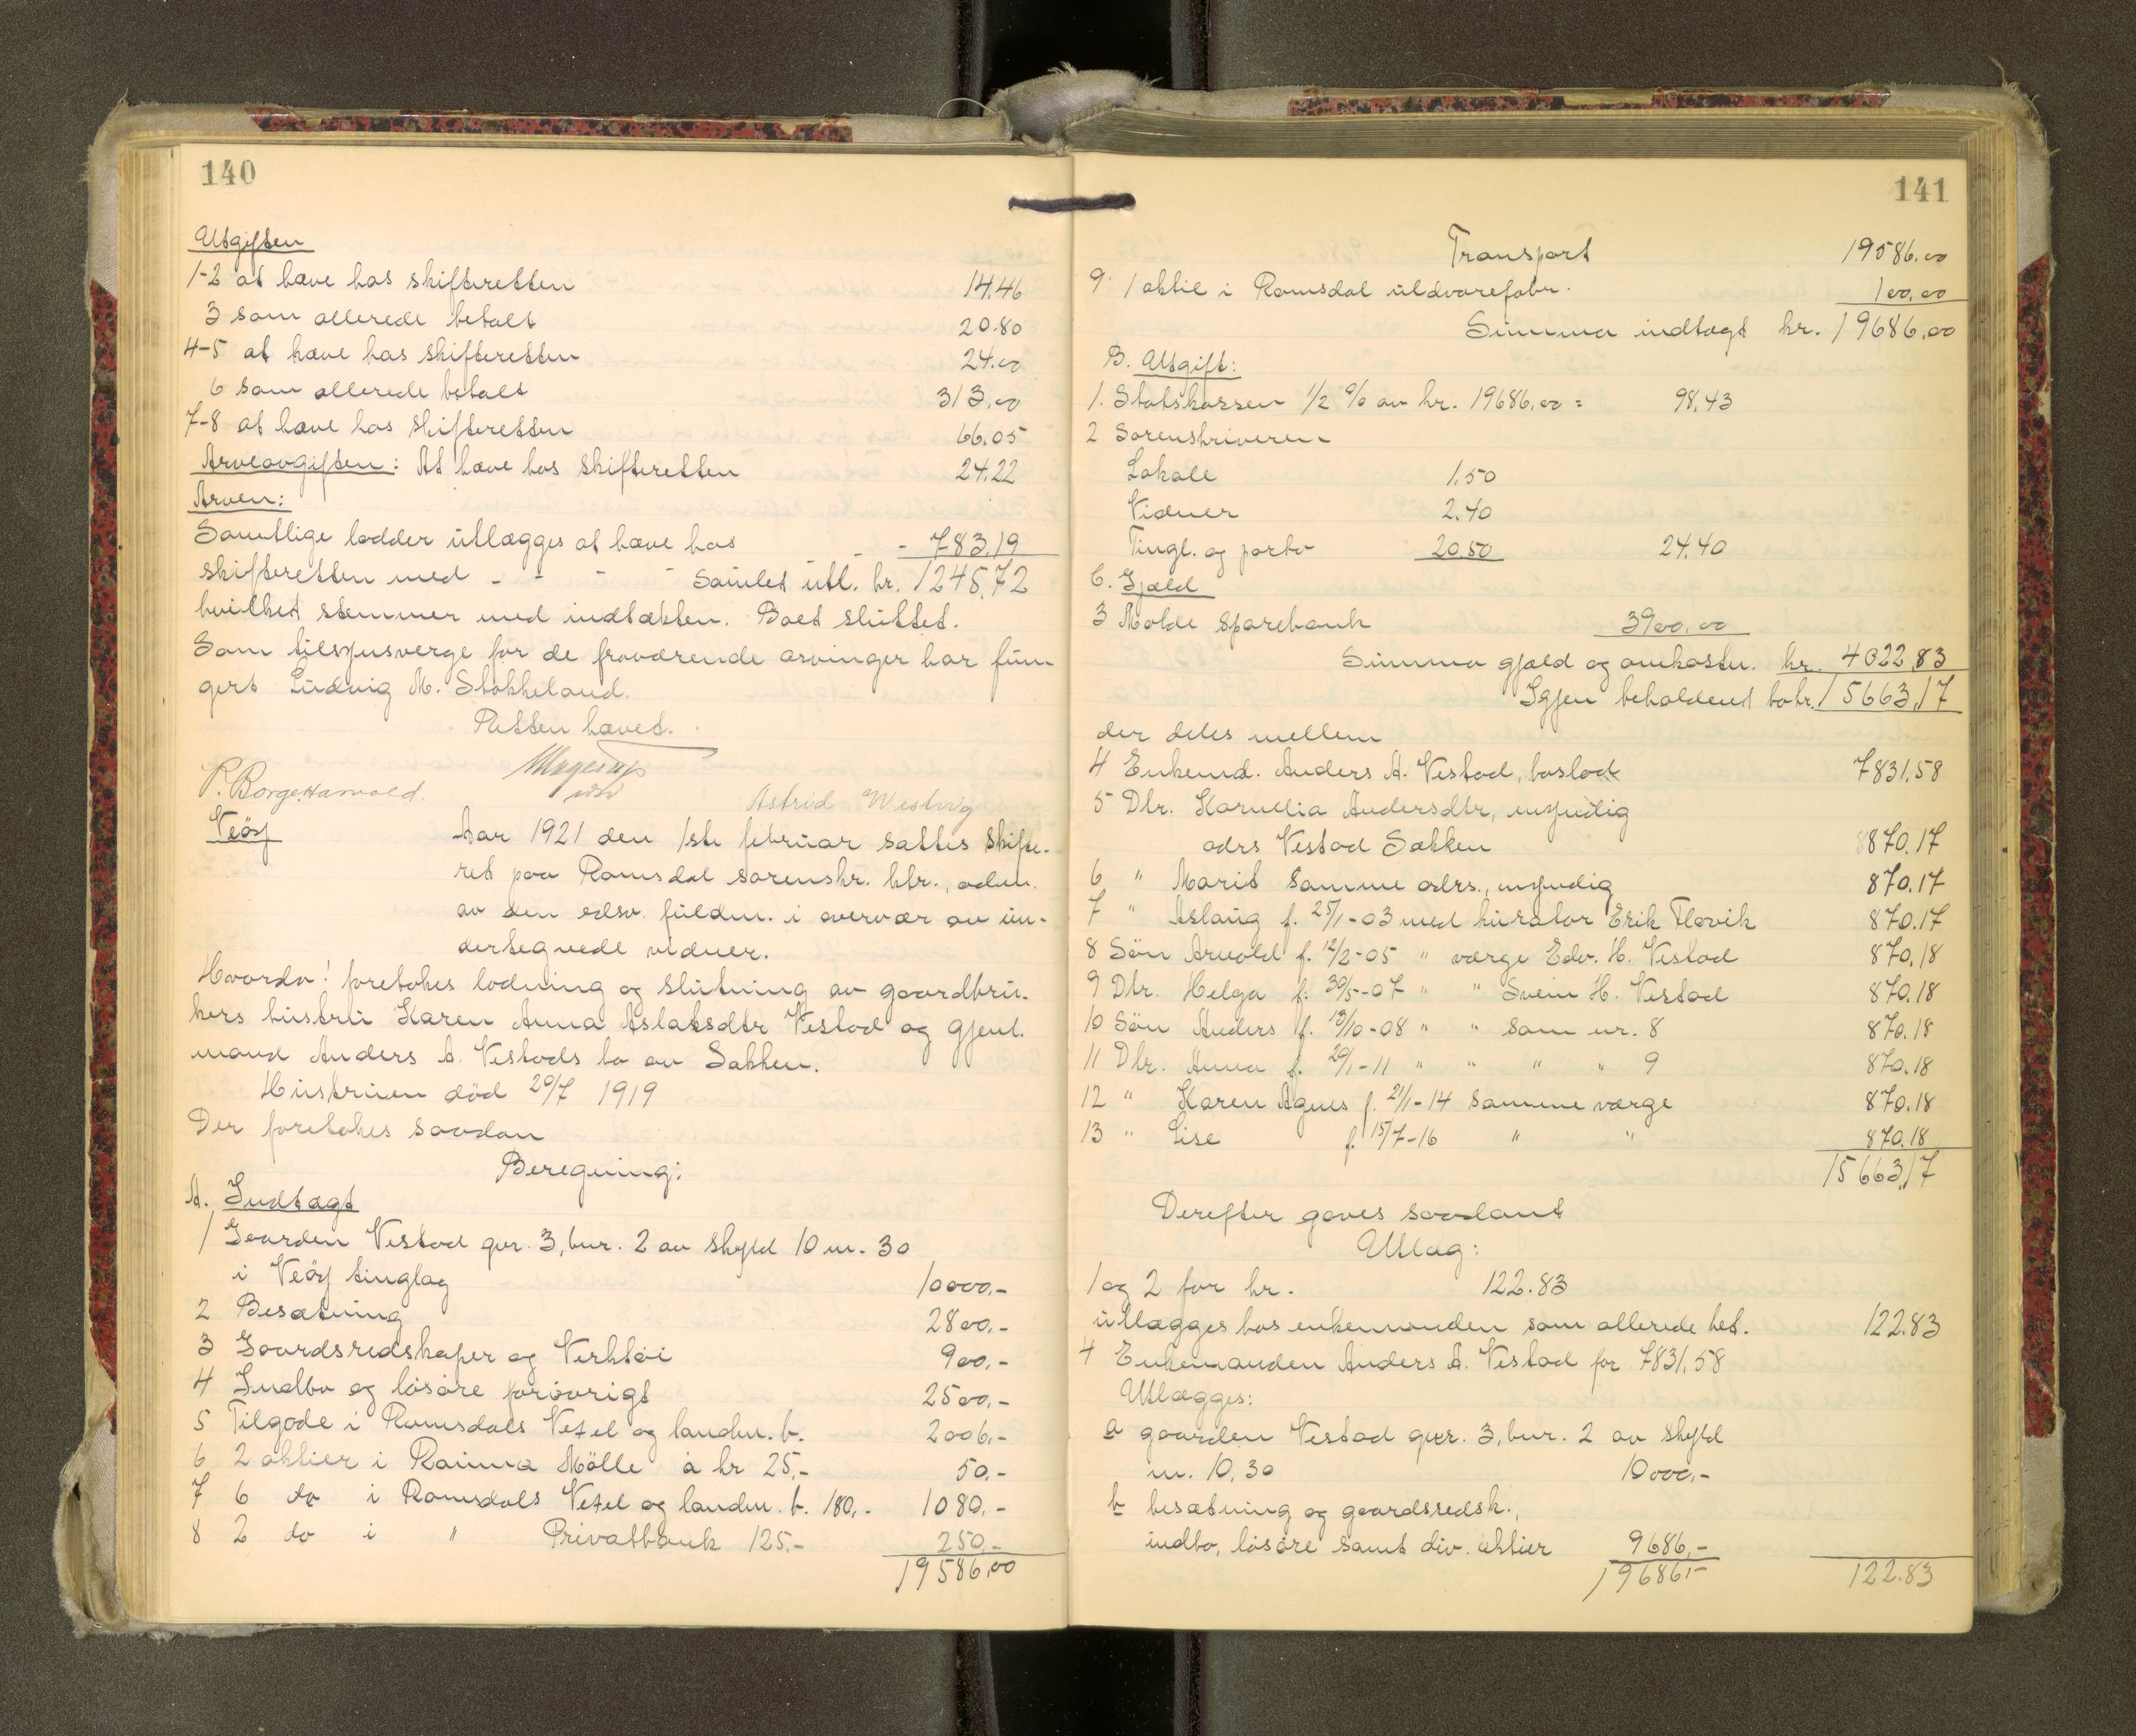 140
Utgiften
1-2 at hæve hos skifteretten 14.46
3 som allerede betalt 20.80
4-5 at hæve hos skifteretten 24.00
6 som allerede betalt 313.00
7-8 at hæve hos skifteretten 66.05
Arveavgiften: At hæve hos skifteretten 24.22
Arven:
Samtlige lodder utlægges at hæve hos
skifteretten med - - - - - - 783,19
Samlet utl. kr. 1245,72
hvilket stemmer med indtækten. Boet sluttet.
Som tilsynsverge for de fraværende arvinger har fun-
gert Ludvig M. Stokkeland.
Retten hævet.
P. Borge Harvold. Astrid Westvig
Veöy
Aar 1921 den 1ste februar sattes skifte-
ret paa Romsdal sorenskr. ktr., adm.
av den edsv. fuldm. i overvær av un-
dertegnede vidner.
Hvorda! foretokes lodning og slutning av gaardbru-
kers hustru Karen Anna Aslaksdtr Vestad og gjenl.
mand Anders A. Vestads bo av Sækken.
Hustruen død 20/7 1919
Der foretokes saadan
Beregning:
A. Indtægt
1 Gaarden Vestad gnr. 3, bnr. 2 av skyld 10 m. 30
i Veöy tinglag 10000.-
2 Besætning 2800.-
3 Gaardsredskaper og Verktøi 900.-
4 Indbo og løsøre forøvrigt 2500.-
5 Tilgode i Romsdals Vexel og landm. b. 2006.-
6 2 aktier i Rauma Mölle à kr 25.- 50.-
7 6 do i Romsdals Vexel og landm. b. 180.- 1080.-
8 2 do i " Privatbank 125.- 250.-
19586,00
141
Transport 19586.00
9 1 aktie i Romsdal uldvarefabr. 100.00
Summa indtægt kr. 19686,00
B. Utgift:
1. Statskassen 1/2 % av kr. 19686,00 = 98,43
2 Sorenskriveren
Lokale 1,50
Vidner 2.40
Tingl. og porto 20.50 24.40
C. Gjæld
3 Molde Sparebank 3900.00
Summa gjæld og omkostn. kr. 4022,83
Igjen beholdent bo kr. 15663,17
der deles mellem
4 Enkemd. Anders A. Vestad, boslod 7831,58
5 Dtr. Kornelia Andersdtr, umyndig
adrs Vestad Sækken 870.17
6 " Marit samme adrs., umyndig 870.17
7 " Aslaug f. 25/1-03 med kurator Erik Flovik 870.17
8 Søn Arnold f. 12/2-05 " værge Edv. H. Vestad 870,18
9 Dtr. Helga f. 30/5-07 " " Svein H. Vestad 870.18
10 Søn Anders f. 13/10-08 " " som nr. 8 870.18
11 Dtr. Anna f. 29/1-11 " " " " 9 870.18
12 " Karen Agnes f. 21/1-14 samme værge 870.18
13 " Lise f. 15/7-16 " " 870.18
15663,17
Derefter gaves saadant
Utlæg:
1 og 2 for kr. 122.83
utlægges hos enkemanden som allerede bet. 122.83
4 Enkemanden Anders A. Vestad for 7831,58
Utlægges:
a gaarden Vestad gnr. 3, bnr. 2 av skyld
m. 10,30 10000,-
b besætning og gaardsredsk.,
indbo, løsøre samt div. aktier 9686,-
19686,- 122.83